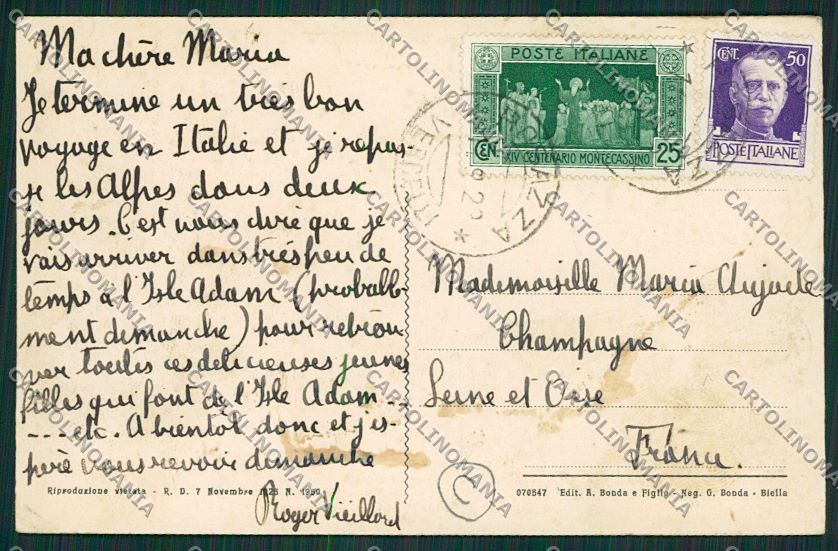 Ma chère Maria
Je termine un très bon
voyage en Italie et je repas-
se les Alpes dans deux
jours. C'est vous dire que je
vais arriver dans très peu de
temps à l'Isle Adam (probable-
ment dimanche) pour retrou-
ver toutes ces délicieuses jeunes
filles qui font de l'Isle Adam...
.... etc. A bientôt donc et j'es-
père vous revoir dimanche
Roger Vieillard
Riproduzione vietata - R. D. 7 Novembre 1925 N. 1950
POSTE ITALIANE
CEN. 25
XIV CENTENARIO MONTECASSINO
CENT. 50
POSTE ITALIANE
Mademoiselle Maria
Champagne
Seine et Oise
France.
C
070547 Edit. A. Bonda e Figlio - Neg. G. Bonda - Biella
CARTOLINOMANIA